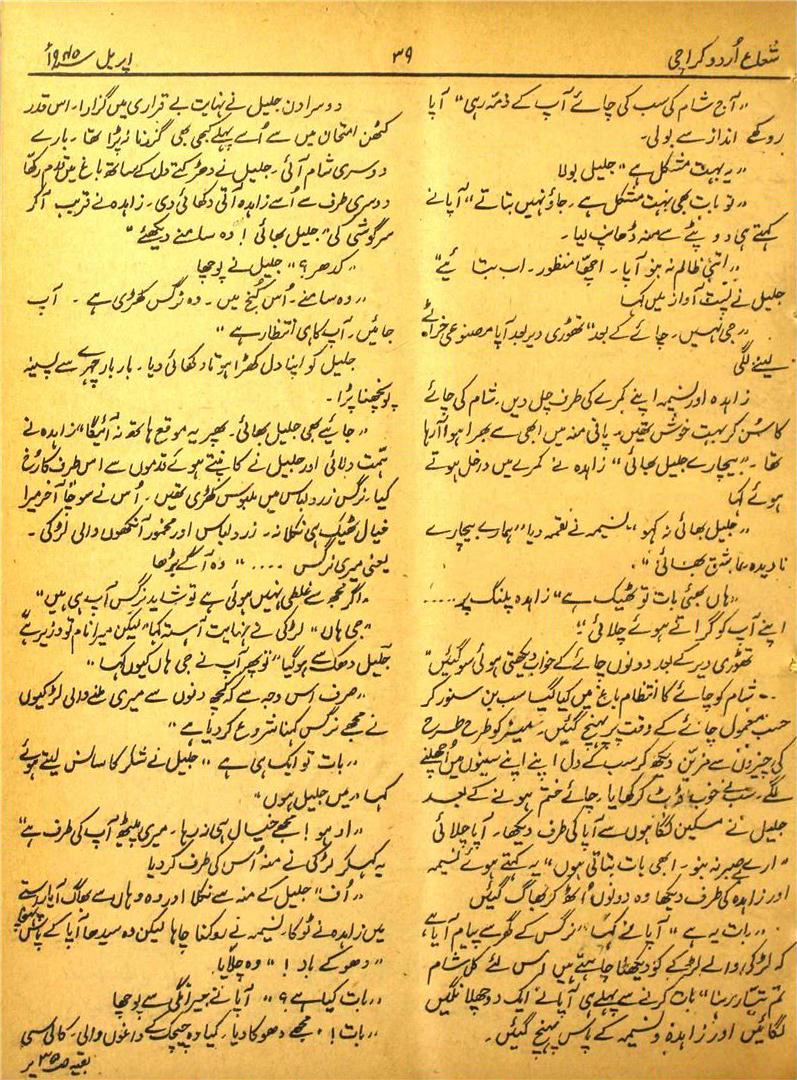 شعاع اُردو کراچی
۳۹
اپریل سنہ ۱۹۴۵ء
"آج شام کی سب کی چائے آپ کے ذمہ رہی" آپا
روکھے انداز سے بولی۔
"یہ بہت مشکل ہے" جلیل بولا
"تو بات بھی بہت مشکل ہے۔ جاؤ نہیں بتاتے" آپا نے
کہتے ہی دوپٹے سے منہ ڈھانپ لیا۔
"اتنی ظالم نہ بنو آپا۔ اچھا منظور۔ اب بتائیے"
جلیل نے پست آواز میں کہا
"جی نہیں۔ چائے کے بعد" تھوڑی دیر بعد آپا مصنوعی خراٹے
لینے لگی
زاہدہ اور نسیمہ اپنے کمرے کی طرف چل دیں۔ شام کی چائے
کا سُن کر بہت خوش تھیں۔ پانی منہ میں ابھی سے بھرا ہوا آ رہا
تھا۔ "بیچارے جلیل بھائی" زاہدہ نے کمرے میں داخل ہوتے
ہوئے کہا
"جلیل بھائی نہ کہو"۔ نسیمہ نے لقمہ دیا "ہمارے بیچارے
نادیدہ عاشق بھائی"۔
"ہاں بھئی بات تو ٹھیک ہے" زاہدہ پلنگ پر .....
اپنے آپ کو گراتے ہوئے چلائی"۔
تھوڑی دیر کے بعد دونوں چائے کے خواب دیکھتی ہوئی سو گئیں"
شام کو چائے کا انتظام باغ میں کیا گیا سب بن سنور کر
حسب معمول چائے کے وقت پر پہنچ گئیں۔ میز کو طرح طرح
کی چیزوں سے مزین دیکھ کر سب کے دل اپنے اپنے سینوں میں اُچھلنے
لگے۔ سب نے خوب ڈٹ کر کھایا۔ چائے ختم ہونے کے بعد
جلیل نے مسکین نگاہوں سے آپا کی طرف دیکھا۔ آپا چلائی
"ارے بے صبر نہ بنو۔ ابھی بات بتاتی ہوں" یہ کہتے ہوئے نسیمہ
اور زاہدہ کی طرف دیکھا وہ دونوں اُٹھ کر بھاگ گئیں
"بات یہ ہے" آپا نے کہا "نرگس کے گھر سے پیام آیا ہے
کہ لڑکی والے لڑکے کو دیکھنا چاہتے ہیں اس لئے کل شام
تم تیار رہنا" بات کرنے سے پہلے ہی آپا نے ایک دو چھلانگیں
لگائیں اور زاہدہ و نسیمہ کے پاس پہنچ گئیں۔
دوسرا دن جلیل نے نہایت بے قراری میں گزارا۔ اس قدر
کٹھن امتحان میں سے اُسے پہلے کبھی بھی گزرنا نہ پڑا تھا۔ بارے
دوسری شام آئی۔ جلیل نے دھڑکتے دل کے ساتھ باغ میں قدم رکھا
دوسری طرف سے اُسے زاہدہ آتی دکھائی دی۔ زاہدہ نے قریب آ کر
سرگوشی کی "جلیل بھائی! وہ سامنے دیکھئے"
"کدھر؟" جلیل نے پوچھا
"وہ سامنے۔ اُس کُنج میں۔ وہ نرگس کھڑی ہے۔ آپ
جائیں۔ آپ کا ہی انتظار ہے"
جلیل کو اپنا دل کھڑا ہوتا دکھائی دیا۔ بار بار چہرے سے پسینہ
پونچھنا پڑا۔
"جائیے بھی جلیل بھائی۔ پھر یہ موقع ہاتھ نہ آئیگا" زاہدہ نے
ہمت دلائی اور جلیل نے کانپتے ہوئے قدموں سے اس طرف کا رُخ
کیا۔ نرگس زرد لباس میں ملبوس کھڑی تھیں۔ اُس نے سوچا آخر میرا
خیال ٹھیک ہی نکلا نہ۔ زرد لباس اور مخمور آنکھوں والی لڑکی۔
یعنی میری نرگس ...." وہ آگے بڑھا
"اگر مجھ سے غلطی نہیں ہوئی ہے تو شاید نرگس آپ ہی ہیں"
"جی ہاں" لڑکی نے نہایت آہستہ کہا "لیکن میرا نام تو وزیر ہے"
جلیل دھک سے ہو گیا "تو پھر آپ نے جی ہاں کیوں کہا"
"صرف اس وجہ سے کہ کچھ دنوں سے میری ملنے والی لڑکیوں
نے مجھے نرگس کہنا شروع کر دیا ہے"
"بات تو ایک ہی ہے"۔ جلیل نے شکر کا سانس لیتے ہوئے
کہا "میں جلیل ہوں"
"اوہو! مجھے خیال ہی نہ رہا۔ میری پیٹھ آپ کی طرف ہے"
یہ کہکر لڑکی نے منہ اُس کی طرف کر دیا
"اُف" جلیل کے منہ سے نکلا اور وہ وہاں سے بھاگ آیا۔ راستے
میں زاہدہ نے ٹوکا۔ نسیمہ نے روکنا چاہا لیکن وہ سیدھا آپا کے پاس پہنچا
"دھوکے باز!" وہ چلایا۔
"بات کیا ہے؟" آپا نے حیرانگی سے پوچھا
"بات! مجھے دھوکا دیا۔ کیا وہ چیچک کے داغوں والی۔ کالی سی
بقیہ صفحہ ۳۵ پر